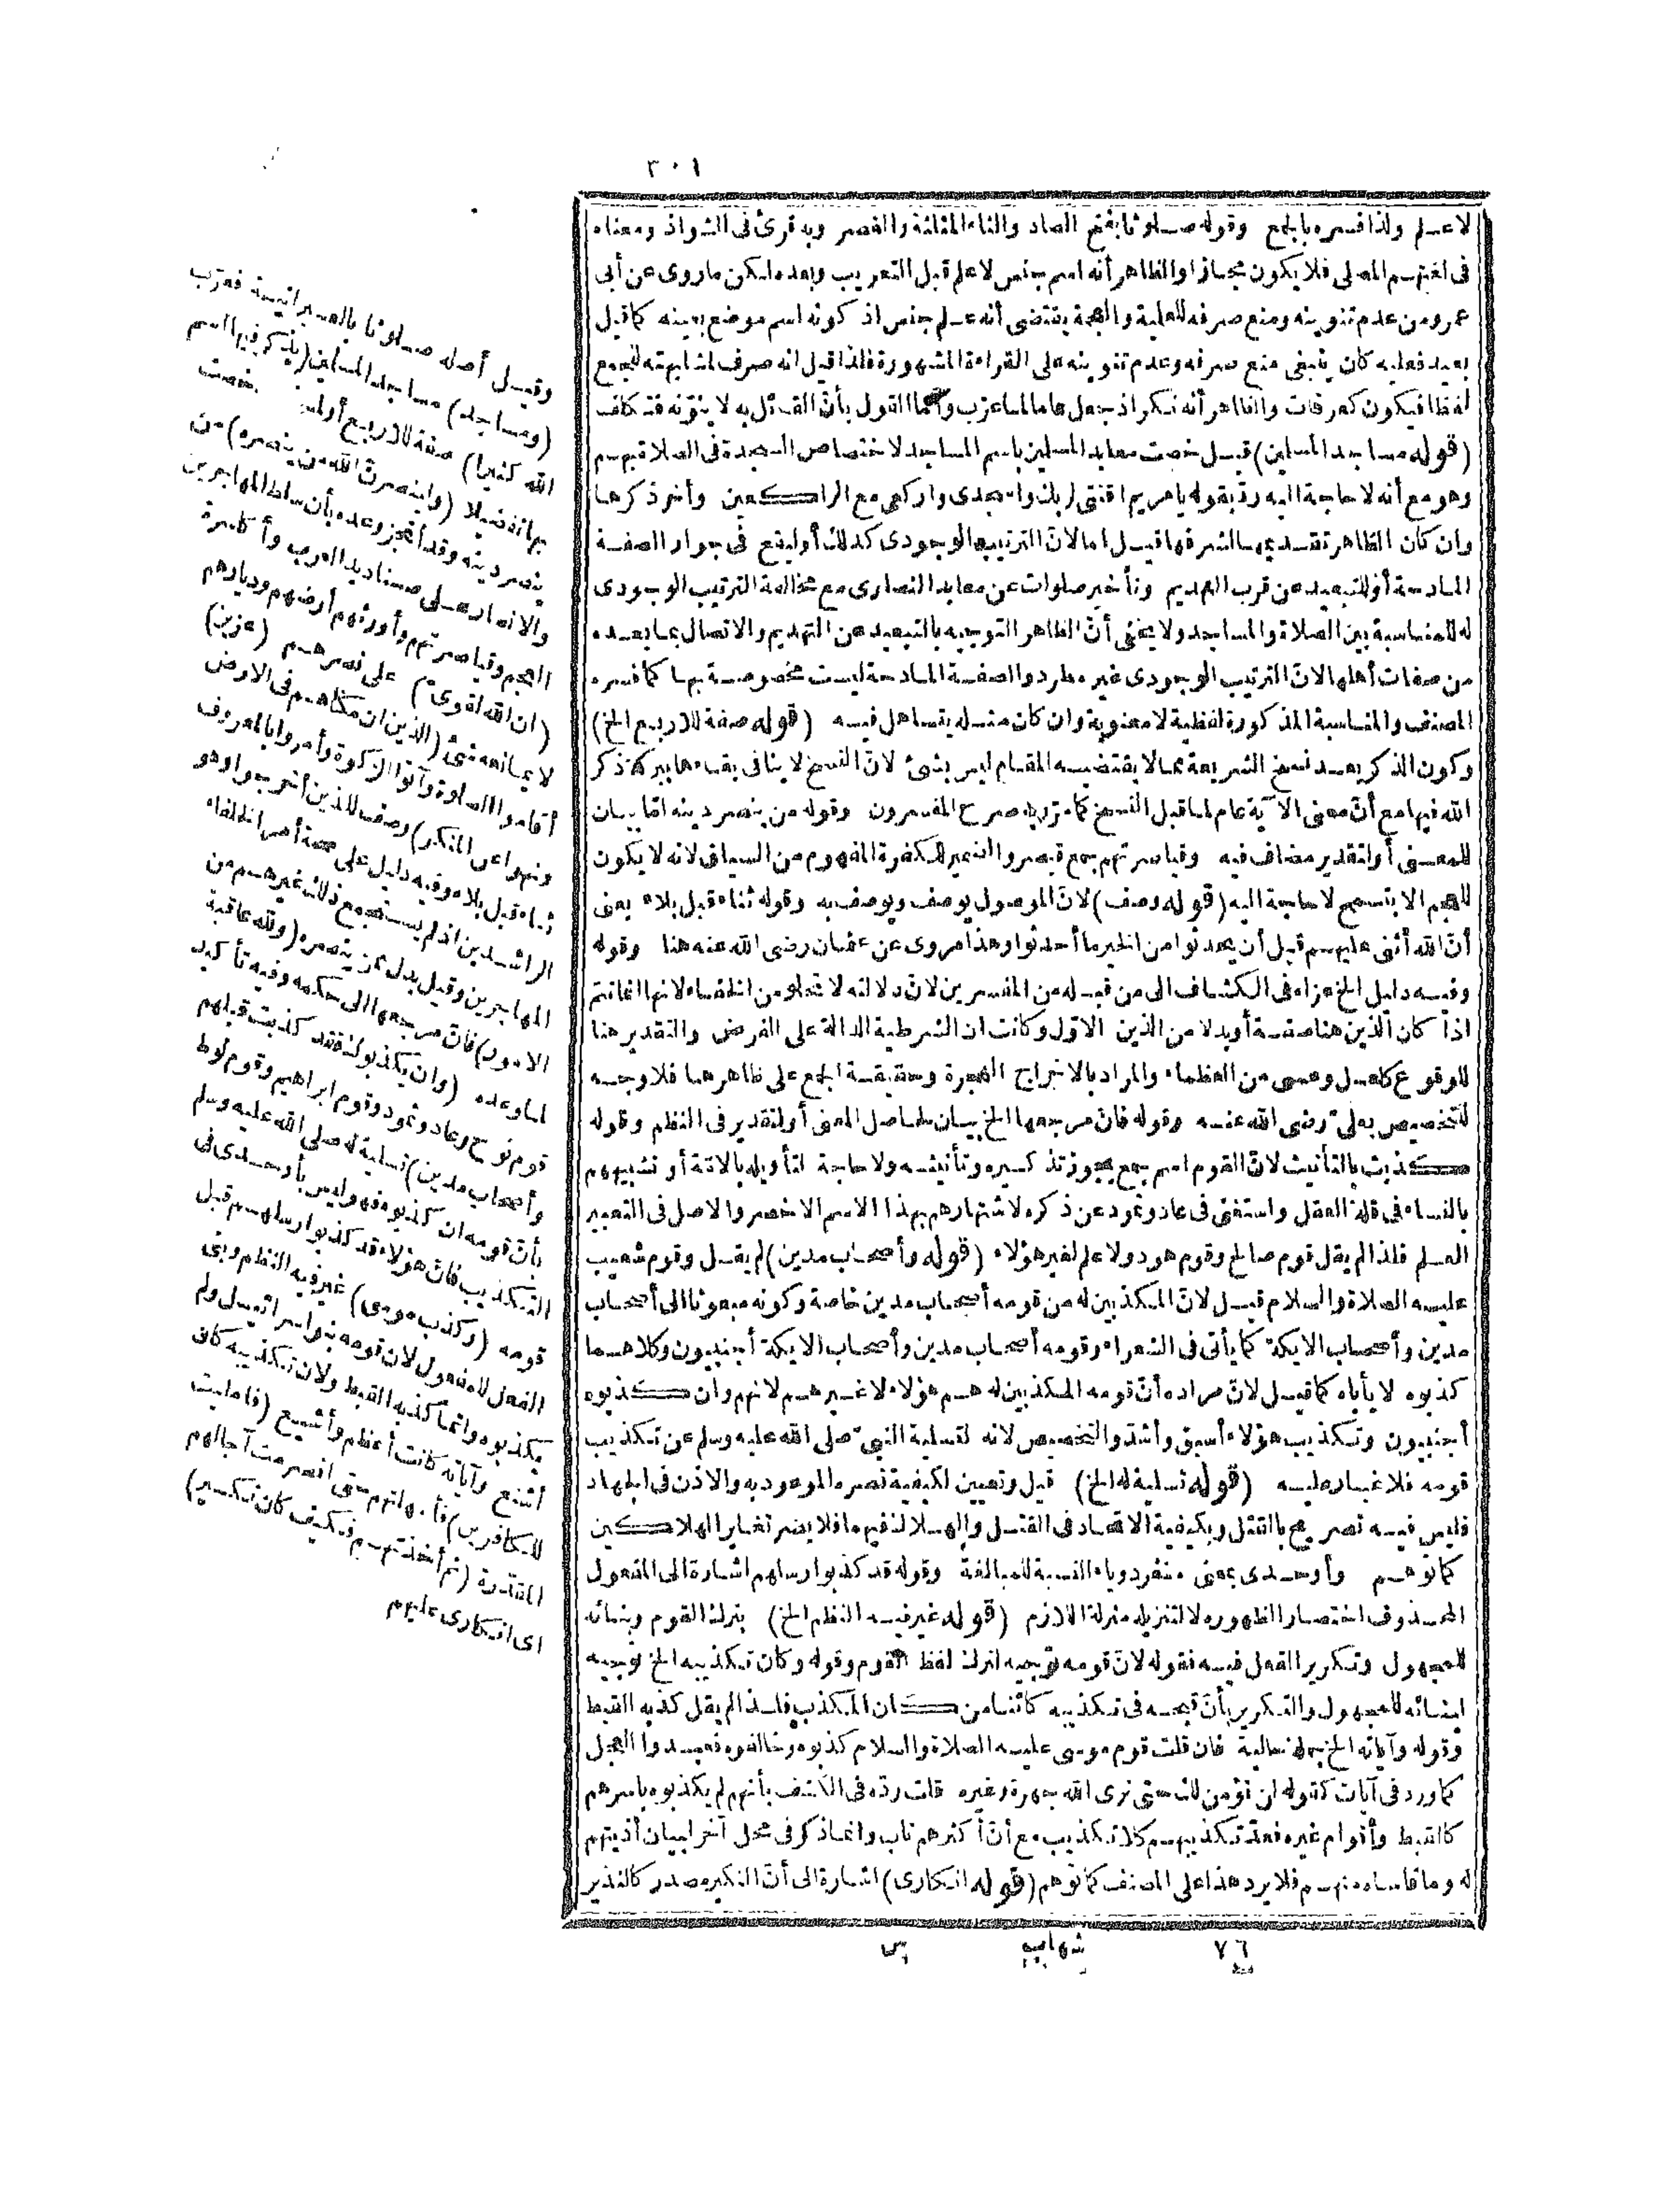 ٣٠١
لا علم ولذا فسره بالجمع وقوله صلوثا بفتح الصاد والثاء المثلثة والقصر وبه قرئ فى الشواذ ومعناه
فى لغتهم المصلى فلا يكون مجازا والظاهر أنه اسم جنس لا علم قبل التعريب وبعده لكن ماروى عن أبى
عمرو من عدم تنوينه ومنع صرفه للعلمية والعجمة يقتضى أنه علم جنس اذ كونه اسم موضع بعينه كما قيل
بعيد فعليه كان ينبغى منع صرفه وعدم تنوينه على القراءة المشهورة فلذا قيل انه صرف لمشابهته للجمع
لفظا فيكون كعرفات والظاهر أنه نكر اذ جعل عاما لما عرب وأما القول بأن القائل به لا ينونه فتكلف
(قوله مساجد المسلمين) قيل خصت معابد المسلمين باسم المساجد لاختصاص السجدة فى الصلاة بهم
وهو مع أنه لا حاجة اليه رد بقوله يا مريم اقنتى لربك واسجدى واركعى مع الراكعين وأخر ذكرها
وان كان الظاهر تقديمها لشرفها قيل امالان الترتيب الوجودى كذلك أوليقع فى جوار الصفة
المادحة أوللتبعيد عن قرب التهديم وتأخير صلوات عن معابد النصارى مع مخالفة الترتيب الوجودى
له للمناسبة بين الصلاة والمساجد ولا يخفى أن الظاهر التوجيه بالتبعيد عن التهديم والاتصال بما بعده
من صفات أهلها لان الترتيب الوجودى غير مطرد والصفة المادحة ليست مخصوصة بها كما فسره
المصنف والمناسبة المذكورة لفظية لا معنوية وان كان مثله يتساهل فيه (قوله صفة للاربع الخ)
وكون الذكر بعد نسخ الشريعة مما لا يقتضيه المقام ليس بشئ لان النسخ لا ينافى بقاءها ببركة ذكر
الله فيها مع أن معنى الآية عام لما قبل النسخ كما مر وبه صرح المفسرون وقوله من ينصر دينه اما بيان
للمعنى أو لتقدير مضاف فيه وقياصرتهم جمع قيصر والضمير للكفرة المفهوم من السياق لانه لا يكون
للعجم الا بتسمح لا حاجة اليه (قوله وصف) لان الموصول يوصف ويوصف به وقوله ثناء قبل بلاء يعنى
أن الله أثنى عليهم قبل أن يحدثوا من الخير ما أحدثوا وهذا مروى عن عثمان رضى الله عنه هنا وقوله
وفيه دليل الخ عزاه فى الكشاف الى من قبله من المفسرين لان دلالته لا تخلو من الخفاء لانها انما تتم
اذا كان الذين هنا صفة أو بدلا من الذين الاول وكانت ان الشرطية الدالة على الفرض والتقدير هنا
للوقوع كلعل وعسى من العظماء والمراد بالاخراج الهجرة وحقيقة الجمع على ظاهرهما فلا وجه
للتخصيص بعلى رضى الله عنه وقوله فان مرجعها الخ بيان لحاصل المعنى أو لتقدير فى النظم وقوله
كذبت بالتأنيث لان القوم اسم جمع يجوز تذكيره وتأنيثه ولا حاجة لتأويله بالامّة أو تشبيههم
بالنساء فى قلة العقل واستغنى فى عاد وثمود عن ذكره لاشتهارهم بهذا الاسم الاخصر والاصل فى التعبير
العلم فلذا لم يقل قوم صالح وقوم هود ولا علم لغير هؤلاء (قوله وأصحاب مدين) لم يقل وقوم شعيب
عليه الصلاة والسلام قيل لان المكذبين له من قومه أصحاب مدين خاصة وكونه مبعوثا الى أصحاب
مدين وأصحاب الايكة كما يأتى فى الشعراء وقومه أصحاب مدين وأصحاب الايكة أجنبيون وكلاهما
كذبوه لا يأباه كما قيل لان مراده أن قومه المكذبين له هم هؤلاء لا غيرهم لانهم وان كذبوه
أجنبيون وتكذيب هؤلاء أسبق وأشد والتخصيص لانه لتسلية النبى صلى الله عليه وسلم عن تكذيب
قومه فلا غبار عليه (قوله تسلية له الخ) قيل وتعيين لكيفية نصره الموعود به والاذن فى الجهاد
فليس فيه تصريح بالقتل وبكيفية الاتحاد فى القتل والهلاك فيهما فلا يضر تغاير الهلاكين
كما توهم وأوحدى بمعنى منفرد وياء النسبة للمبالغة وقوله قد كذبوا رسلهم اشارة الى المفعول
المحذوف اختصارا لظهوره لا لتنزيله منزلة اللازم (قوله غير فيه النظم الخ) بترك القوم وبنائه
للمجهول وتكرير الفعل فيه فقوله لان قومه توجيه لترك لفظ القوم وقوله وكان تكذيبه الخ توجيه
لبنائه للمجهول والتكرير بأن قبحه فى تكذيبه كائنا من كان المكذب فلذا لم يقل كذبه القبط
وقوله وآياته الخ جملة حالية فان قلت قوم موسى عليه الصلاة والسلام كذبوه وخالفوه فعبدوا العجل
كما ورد فى آيات كقوله لن نؤمن لك حتى نرى الله جهرة وغيره قلت رده فى الكشف بأنهم لم يكذبوه باسرهم
كالقبط وأقوام غيره فعد تكذيبهم كلا تكذيب مع أن أكثرهم تاب وانما ذكر فى محل آخر لبيان أذيتهم
له وما قاساه منهم فلا يرد هذا على المصنف كما توهم (قوله انكارى) اشارة الى أن النكير مصدر كالنذير
وقيل أصله صلوثا بالعبرانية فعرب
(ومساجد) مساجد المسلمين (يذكر فيها اسم
الله كثيرا) صفة للاربع أولمساجد خصت
بها تفضيلا (ولينصرن الله من ينصره) من
ينصر دينه وقد أنجز وعده بأن سلط المهاجرين
والانصار على صناديد العرب وأكاسرة
العجم وقياصرتهم وأورثهم أرضهم وديارهم
(ان الله لقوى) على نصرهم (عزيز)
لا يمانعه شئ (الذين ان مكناهم فى الارض
أقاموا الصلوة وآتوا الزكوة وأمروا بالمعروف
ونهوا عن المنكر) وصف للذين أخرجوا وهو
ثناء قبل بلاء وفيه دليل على صحة أمر الخلفاء
الراشدين اذ لم يستجمع ذلك غيرهم من
المهاجرين وقيل بدل ممن ينصره (ولله عاقبة
الامور) فان مرجعها الى حكمه وفيه تأكيد
لما وعده (وان يكذبوك فقد كذبت قبلهم
قوم نوح وعاد وثمود وقوم ابراهيم وقوم لوط
وأصحاب مدين) تسلية له صلى الله عليه وسلم
بأن قومه ان كذبوه فهو ليس بأوحدى فى
التكذيب فان هؤلاء قد كذبوا رسلهم قبل
قومه (وكذب موسى) غير فيه النظم وبنى
الفعل للمفعول لان قومه بنو اسرائيل ولم
يكذبوه وانما كذبه القبط ولان تكذيبه كان
أشنع وآياته كانت أعظم وأشيع (فأمليت
للكافرين) فأمهلتهم حتى انصرمت آجالهم
المقدرة (ثم أخذتهم فكيف كان نكير)
اى انكارى عليهم
٧٦ شهاب س